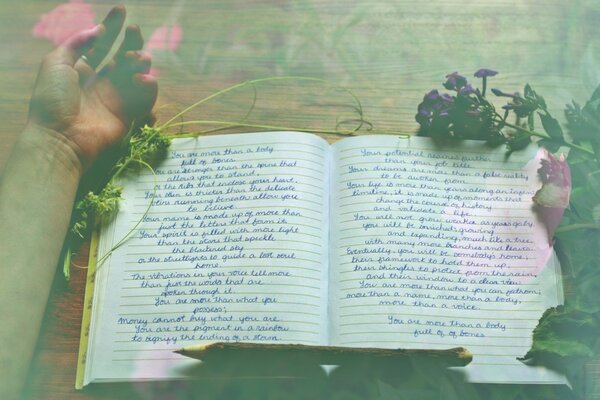 You are more than a body
full of bones.
You are stronger than the spine that
allows you to stand,
or the ribs that enclose your heart.
You are thicker than the delicate
veins running beneath allow you
to believe.
Your name is made up of more than
just the letters that form it.
Your spirit is filled with more light
than the stars that speckle
the blackened sky
or the streetlights to guide a lost soul
home.
The vibrations in your voice tell more
than just the words that are
spoken through it.
You are more than what you
possess;
Money cannot buy what you are.
You are the pigment in a rainbow
to signify the ending of a storm.
Your potential reaches further
than your bill
Your dreams are more than a false reality
to be kept sleeping.
Your life is more than years along an
timeline, it is made up of moments that
change the course of history
and validate a life.
You will not grow weaker as years go by,
you will be enriched, growing
and expanding, much like a tree,
with many more branches and leaves.
Eventually, you will be somebody's home,
their framework to hold them up,
their shingles to protect from the rain,
and their window to a clear day.
You are more than what you can fathom,
more than a name, more than a body,
more than a voice.
You are more than a body
full of of bones.